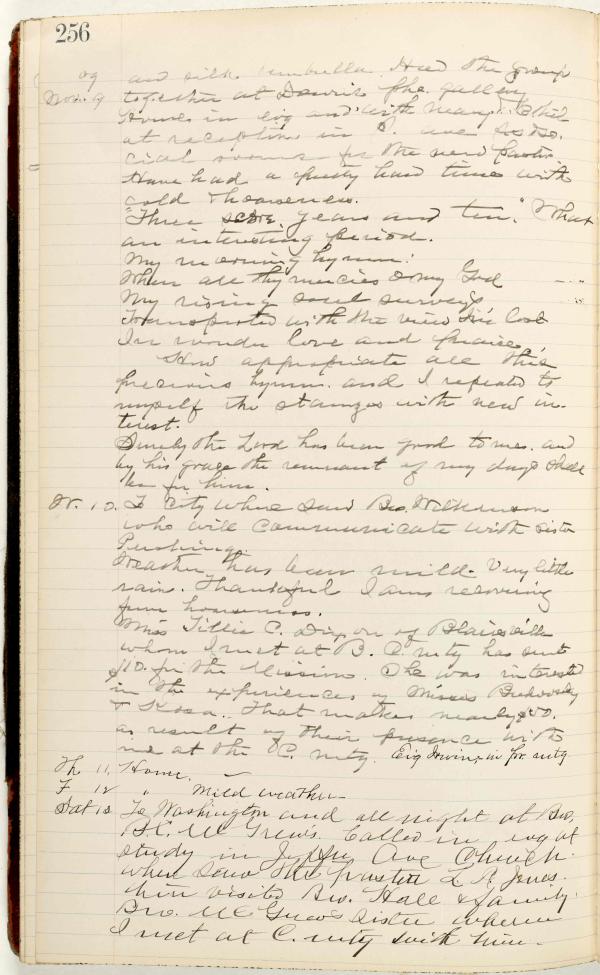 256
09 and silk umbrella. Had the group
Nov. 9 together at Dewitt's pho. gallery
Home in evg and with many
at reception in C. ave so
cial rooms for the new pastor.
Have had a pretty hard time with
cold & hoarseness.
"Three score years and ten." What
an interesting period.
My morning hymn:
When all thy mercies O my God
My rising soul surveys
Transported with the view I'm lost
In wonder love and praise.
How appropriate all this
precious hymn. and I repeated to
myself the stanzas with new in-
terest.
Surely the Lord has been good to me. and
by his grace the remnant of my days shall
be for him.
W. 10. To City where saw Bro. Wilkinson
who will communicate with sister
Pershing.
Weather has been mild. Very little
rain. Thankful I am recovering
from hoarseness.
Miss Tillie C. Dixon of Blairsville
whom I met at B. C. mtg has sent
$10. for the Mission. She was interested
in the experiences of Misses
& Kosa. That makes nearly
as result of their presence with
me at the C. mtg. Evg Irwin in pr. mtg
Th 11, Home.
F. 12 " Mild weather
Sat 13 To Washington and all night at Bro.
B.C. McGrew's. Called in evg at
study in Jefferson Ave Church.
when saw the pastor L. R. Jones.
then visited Bro. Hall & family.
Bro. McGrew's sister whom
I met at C. mtg with him.